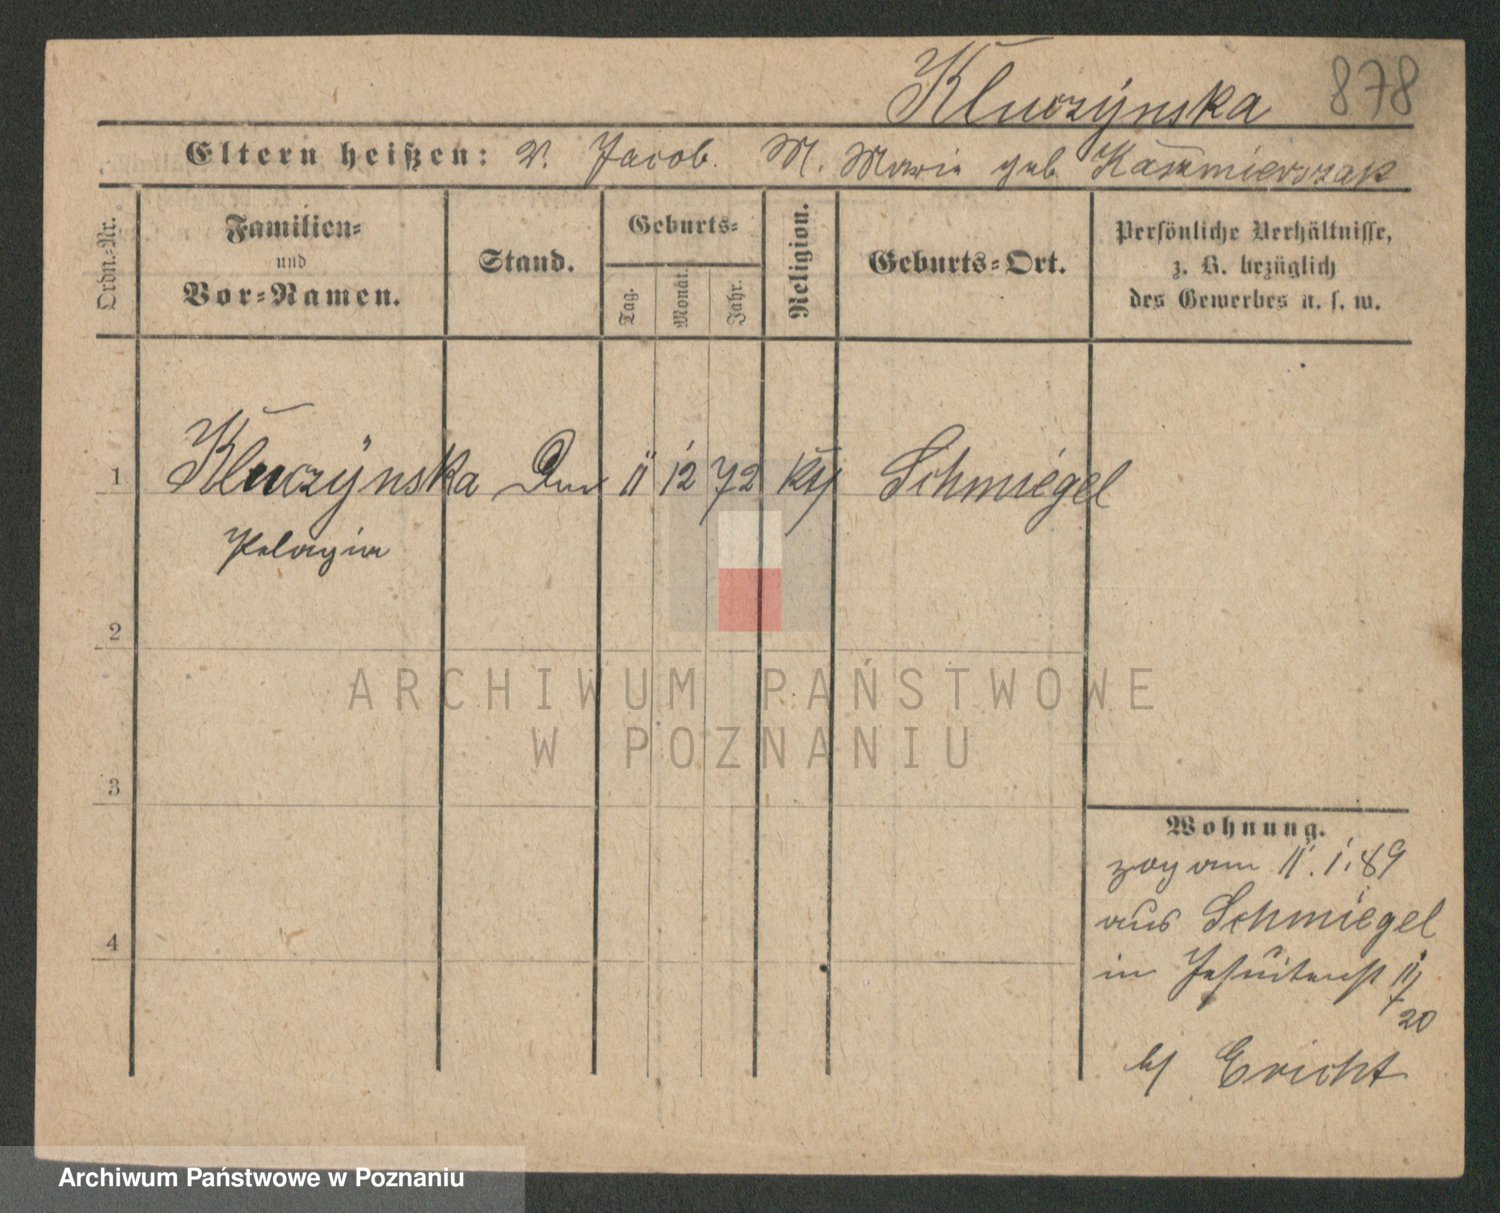 Kluczynska 878
Eltern heißen: V. Jacob. M. Marie geb Kazmierczak
Ordn.-Nr.
Familien-
und
Vor-Namen.
Stand.
Geburts-
Tag.
Monat.
Jahr.
Religion.
Geburts-Ort.
Persönliche Verhältnisse,
z. B. bezüglich
des Gewerbes u. s. w.
1 Kluczynska 11 12 72 Schmiegel
Pelagia
2
ARCHIWUM PAŃSTWOWE
W POZNANIU
3
Wohnung.
zog am 11.1.89
aus Schmiegel
4
in Jesuitenst 11/
20
b/
Archiwum Państwowe w Poznaniu